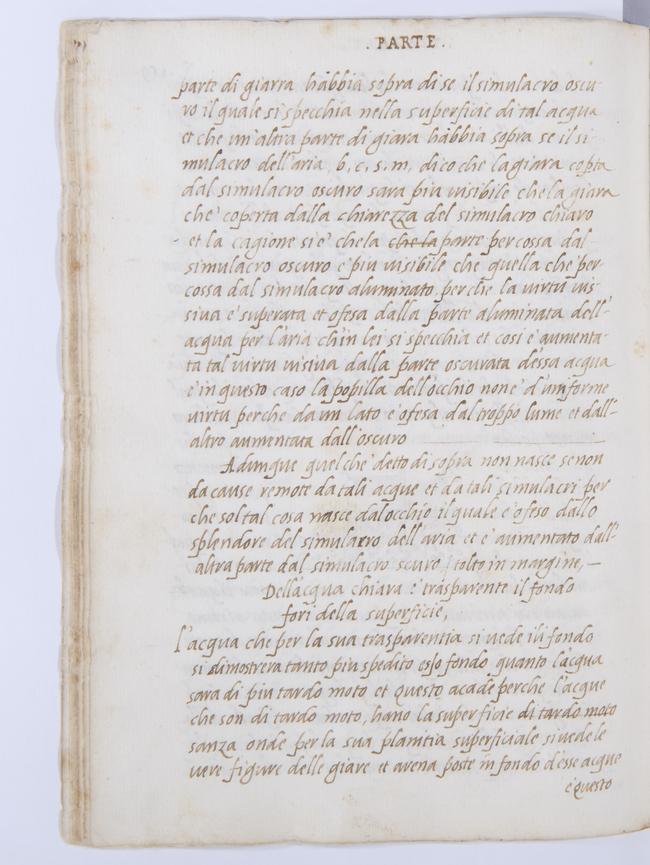 . PARTE .
parte di giarra habbia sopra di se il simulacro oscu-
ro il quale si specchia nella superficie di tal acqua
et che un'altra parte di giara habbia sopra se il si
mulacro dell'aria b, c, s, m, dico che la giara copta
dal simulacro oscuro sara piu uisibile che la giara
che' coperta dalla chiarezza del simulacro chiaro
et la cagione si e' che la che la parte percossa dal
simulacro oscuro e' piu uisibile che quella che' per
cossa dal simulacro aluminato perche la uirtu uis-
siua e' superata et ofesa dalla parte aluminata dell'
acqua per l'aria ch'in lei si specchia et cosi e' aumenta-
ta tal uirtu uisiua dalla parte oscurata d'essa acqua
e' in questo caso la popilla dell'occhio none' d'uniforme
uirtu perche da un lato e' ofesa dal troppo lume et dall'-
altro aumentata dall'oscuro
Adunque quel che' detto di sopra non nasce se non
da cause remote da tali acque et da tali simulacri per
che sol tal cosa nasce dal occhio il quale e' ofeso dallo
splendore del simulacro dell'aria et e' aumentato dall'
altra parte dal simulacro scuro / tolto in margine, —
Dell'acqua chiara e' trasparente il fondo
fori della superficie,
l'acqua che per la sua trasparentia si uede il fondo
si dimostrera tanto piu spedito esso fondo quanto l'acqua
sara di piu tardo moto et questo acade perche l'acque
che son di tardo moto, hano la superficie di tardo moto
sanza onde per la sua planitia superficiale si uede le
uere figure delle giare et arena poste in fondo d'esse acque
e' questo